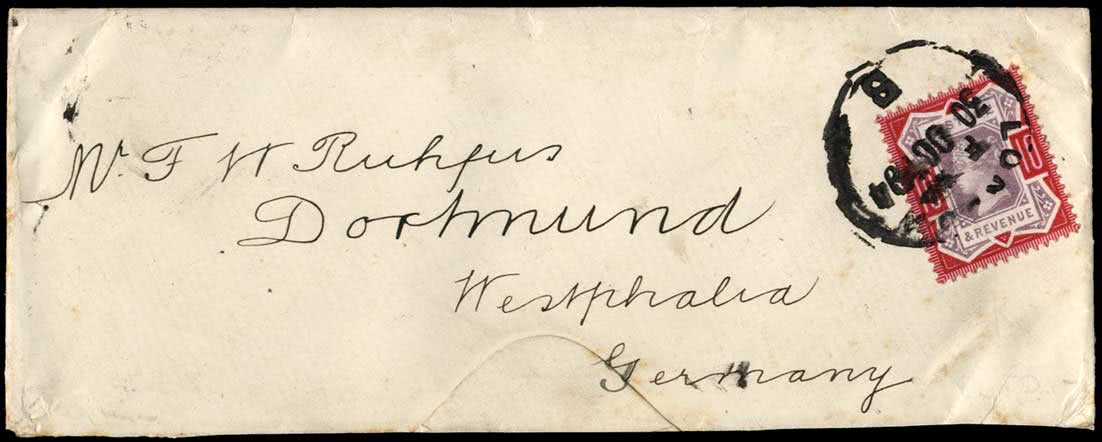 Mr. F W Ruhfus
Dortmund
Westphalia
Germany
B
30 OC 94
& REVENUE